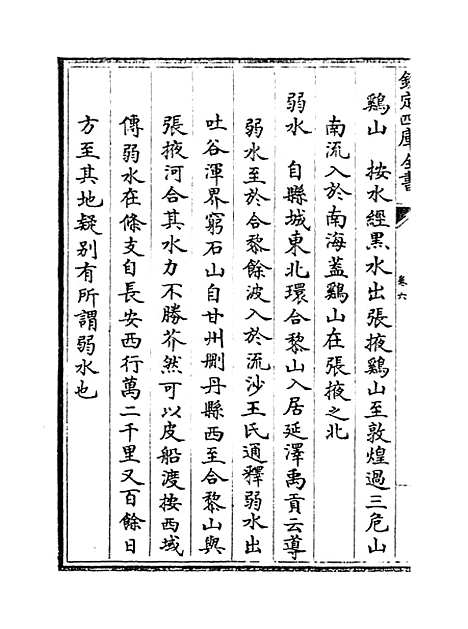 欽定四庫全書
卷六
鷄山　按水經黑水出張掖鷄山至敦煌過三危山
南流入於南海蓋鷄山在張掖之北
弱水　自縣城東北環合黎山入居延澤禹貢云導
弱水至於合黎餘波入於流沙王氏通釋弱水出
吐谷渾界窮石山自甘州刪丹縣西至合黎山與
張掖河合其水力不勝芥然可以皮船渡按西域
傳弱水在條支自長安西行萬二千里又百餘日
方至其地疑别有所謂弱水也